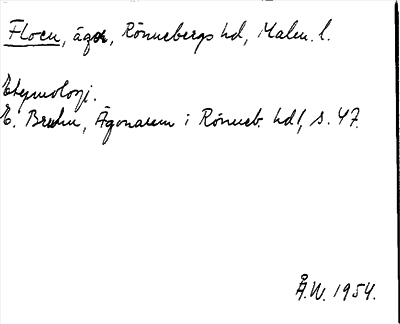 Floen, ägor, Rönnebergs hd, Malm. l.
Etymologi.
E. Bruhn, Ägonamn i Rönneb. hd, s. 47.
Å.W. 1954.